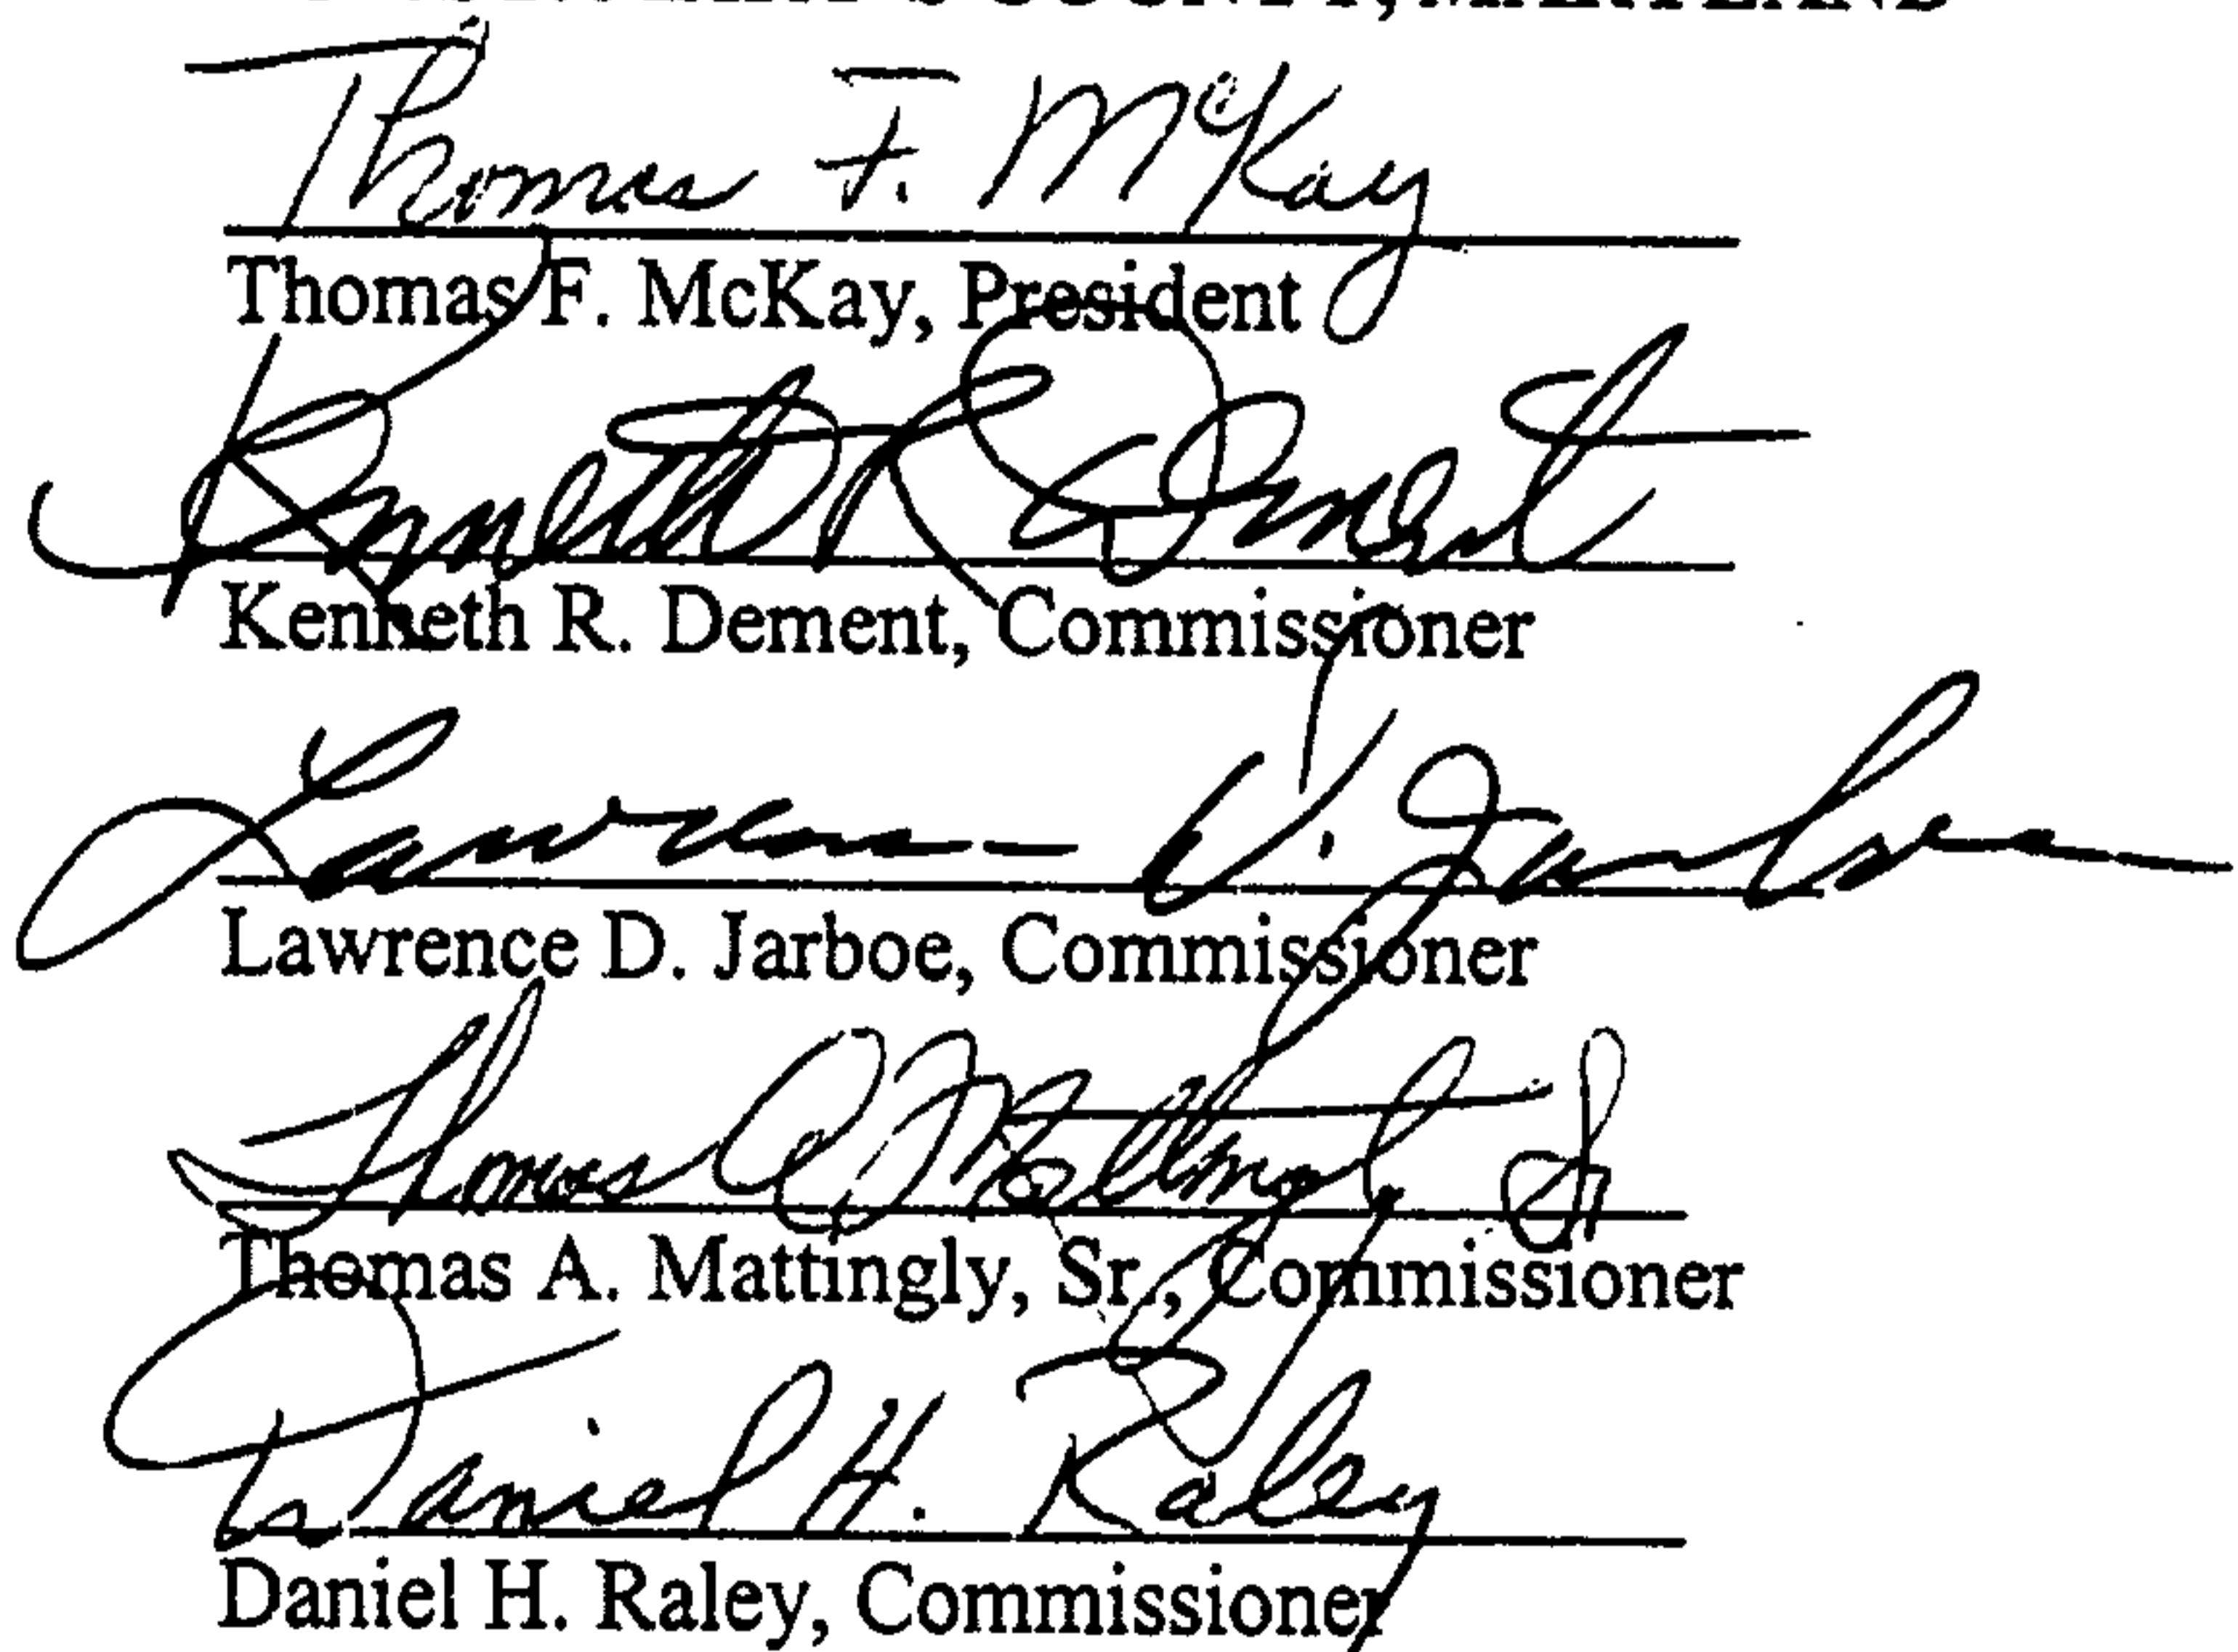 COUNTY, MARYLAND
Thomas F. McKay
Thomas F. McKay, President
Kenneth R Dement
Kenneth R. Dement, Commissioner
Lawrence D. Jarboe
Lawrence D. Jarboe, Commissioner
Thomas A Mattingly Sr
Thomas A. Mattingly, Sr., Commissioner
Daniel H. Raley
Daniel H. Raley, Commissioner